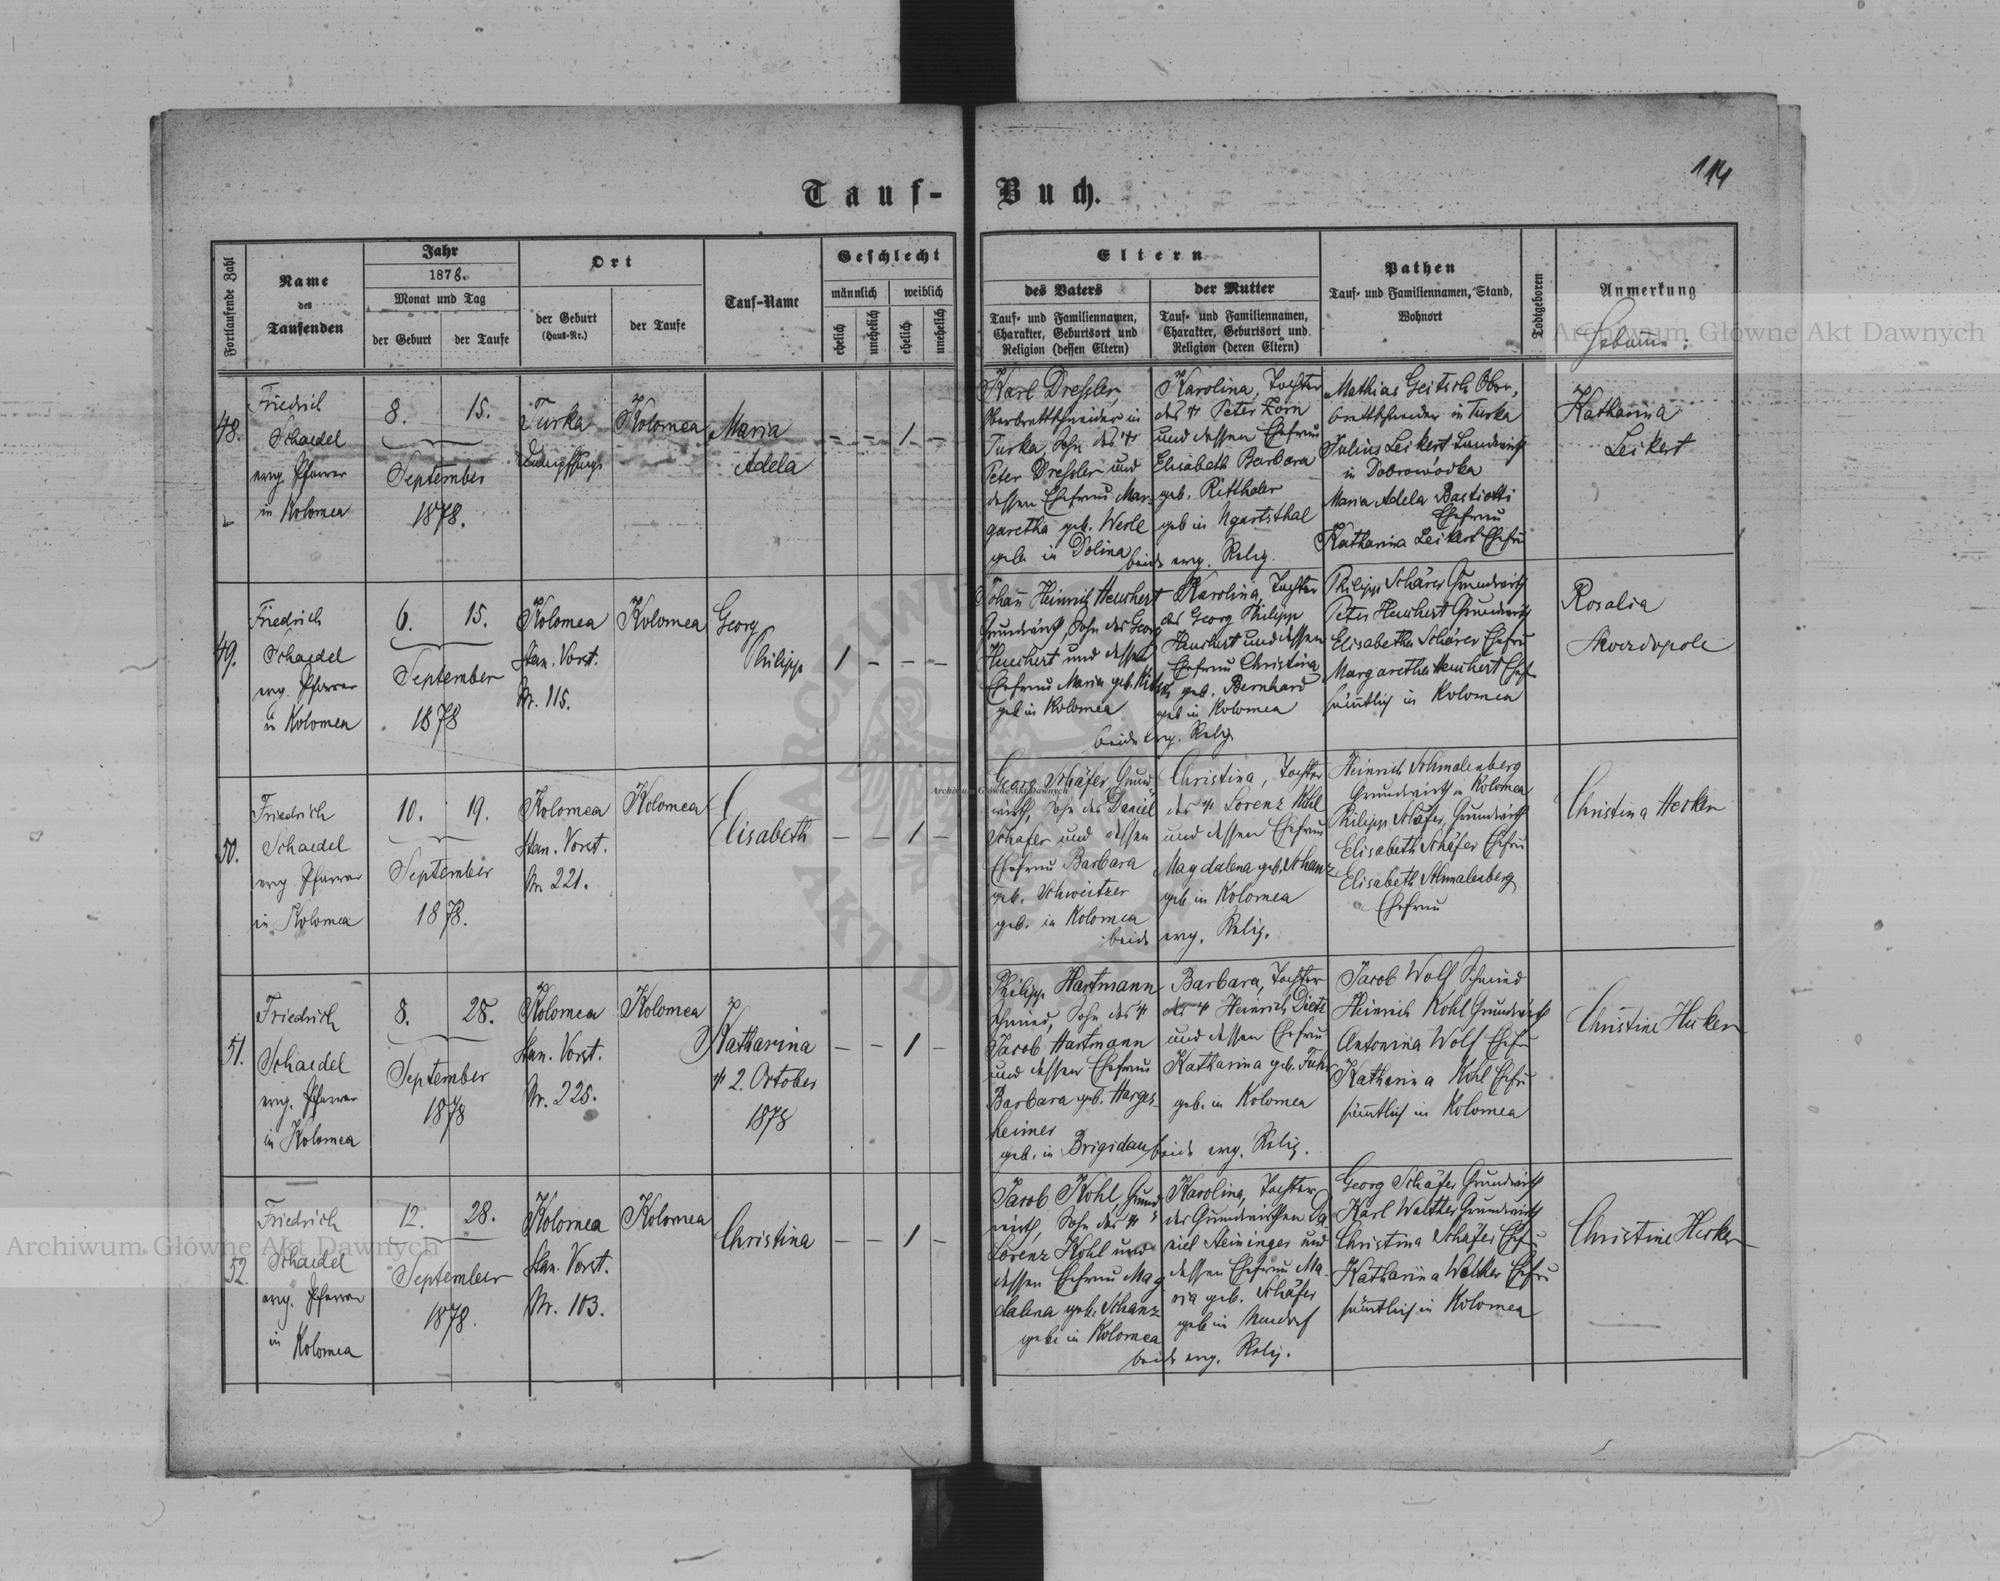 114
Tauf-Buch.
Fortlaufende Zahl
Name
des
Taufenden
Jahr
1878.
Monat und Tag
der Geburt
der Taufe
Ort
der Geburt
(Haus-Nr.)
der Taufe
Tauf-Name
Geschlecht
männlich
weiblich
ehelich
unehelich
ehelich
unehelich
Eltern
des Vaters
Tauf- und Familiennamen,
Charakter, Geburtsort und
Religion (dessen Eltern)
der Mutter
Tauf- und Familiennamen,
Charakter, Geburtsort und
Religion (deren Eltern)
Pathen
Tauf- und Familiennamen, Stand,
Wohnort
Todtgeboren
Anmerkung
Hebamme:
48.
Friedrich
Schaedel
evg. Pfarrer
in Kolomea
8.
15.
September
1878.
Turka
Kolomea
Maria
Adela
– – 1. –
Karl Dressler,
Oberbrettschneider in
Turka, Sohn des †
Peter Dressler und
dessen Ehefrau Mar-
garetha geb. Werle
geb. in Dolina
Karolina, Tochter
des † Peter Zorn
und dessen Ehefrau
Elisabeth Barbara
geb. Ritthaler
geb in Ugartsthal
beide evg. Relig.
Mathias Geitsch Ober-
brettschneider in Turka
Julius Leikert Landwirth
in Dobrowodka
Maria Adela Bastiotti
Ehefrau
Katharina Leikert Ehefrau
Katharina
Leikert
49.
Friedrich
Schaedel
evg. Pfarrer
in Kolomea
6.
15.
September
1878
Kolomea
Stan. Vorst.
Nr. 115.
Kolomea
Georg
Philipp
1 – – –
Johann Heinrich Heuchert
Grundwirth, Sohn des Georg
Heuchert und dessen
Ehefrau Maria geb.
geb in Kolomea
Karolina, Tochter
des Georg Philipp
Heuchert und dessen
Ehefrau Christina
geb. Bernhard
geb in Kolomea
beide evg. Relig.
Philipp Schärer Grundwirth
Peter Heuchert Grundwirth
Elisabetha Schärer Ehefrau
Margaretha Heuchert Ehef.
sämtlich in Kolomea
Rosalia
Skverdopole
50.
Friedrich
Schaedel
evg. Pfarrer
in Kolomea
10.
19.
September
1878.
Kolomea
Stan. Vorst.
Nr. 221.
Kolomea
Elisabeth
– – 1 –
Georg Schäfer Grund-
wirth, Sohn des Daniel
Schäfer und dessen
Ehefrau Barbara
geb. Schweitzer
geb. in Kolomea
Christina, Tochter
des † Lorenz Kohl
und dessen Ehefrau
Magdalena geb. Schanz
geb in Kolomea
beide evg. Relig.
Heinrich Schmalenberg
Grundwirth in Kolomea
Philipp Schäfer, Grundwirth
Elisabeth Schäfer Ehefrau
Elisabeth Schmalenberg
Ehefrau
Christina Herker
51.
Friedrich
Schaedel
evg. Pfarrer
in Kolomea
8.
28.
September
1878
Kolomea
Stan. Vorst.
Nr. 225.
Kolomea
Katharina
† 2. October
1878
– – 1 –
Philipp Hartmann
Schmied, Sohn des †
Jacob Hartmann
und dessen Ehefrau
Barbara geb. Harges-
heimer
geb. in Brigidau
Barbara, Tochter
des † Heinrich Dietz
und dessen Ehefrau
Katharina geb.
geb. in Kolomea
beide evg. Relig.
Jacob Wolf Schmied
Heinrich Kohl Grundwirth
Antonina Wolf Ehefr
Katharina Kohl Ehefr
sämtlich in Kolomea
Christine Herker
52.
Friedrich
Schaedel
evg. Pfarrer
in Kolomea
12.
28.
September
1878.
Kolomea
Stan. Vorst.
Nr. 103.
Kolomea
Christina
– – 1 –
Jacob Kohl, Grund-
wirth, Sohn des †
Lorenz Kohl und
dessen Ehefrau Mag-
dalena geb. Schanz
geb. in Kolomea
Karolina, Tochter
des Grundwirthen Da-
niel Steininger und
dessen Ehefrau Ma-
ria geb. Schäfer
geb in Neudorf
beide evg. Relig.
Georg Schäfer Grundwirth
Karl Walther Grundwirth
Christina Schäfer Ehefr
Katharina Walther Ehefr
sämtlich in Kolomea
Christine Herker
Archiwum Główne Akt Dawnych
Archiwum Główne Akt Dawnych
Archiwum Główne Akt Dawnych